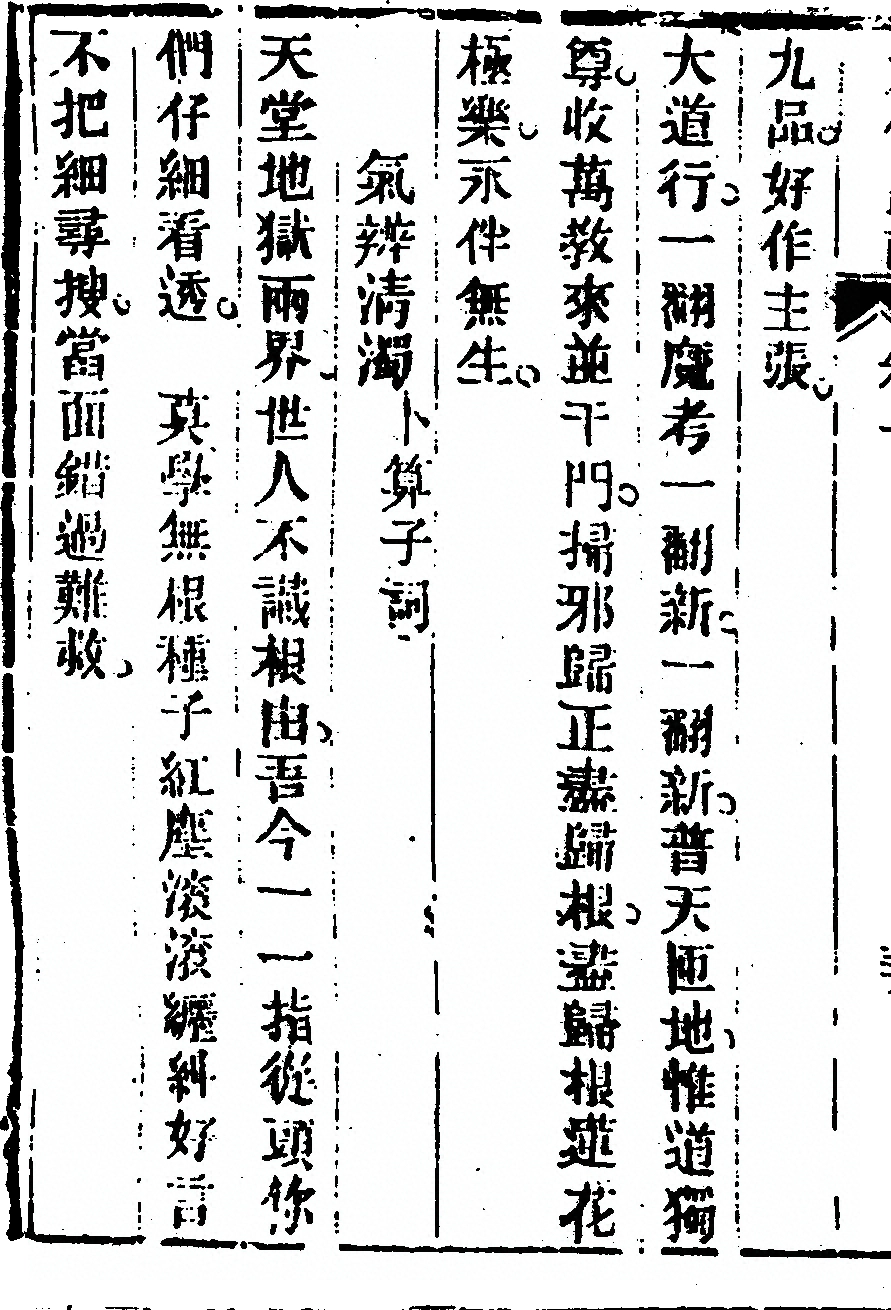 九品好作主張
大道行一翻魔考一翻新一翻新普天匝地惟道獨
尊收萬教來並千門掃邪歸正盡歸根盡歸根蓮花
極樂永伴無生
氣辨清濁 卜算子詞
天堂地獄兩界世人不識根由吾今一一指從頭你
們仔細看透 莫學無根種子紅塵滾滾纏糾好言
不把細尋搜當面錯過難救